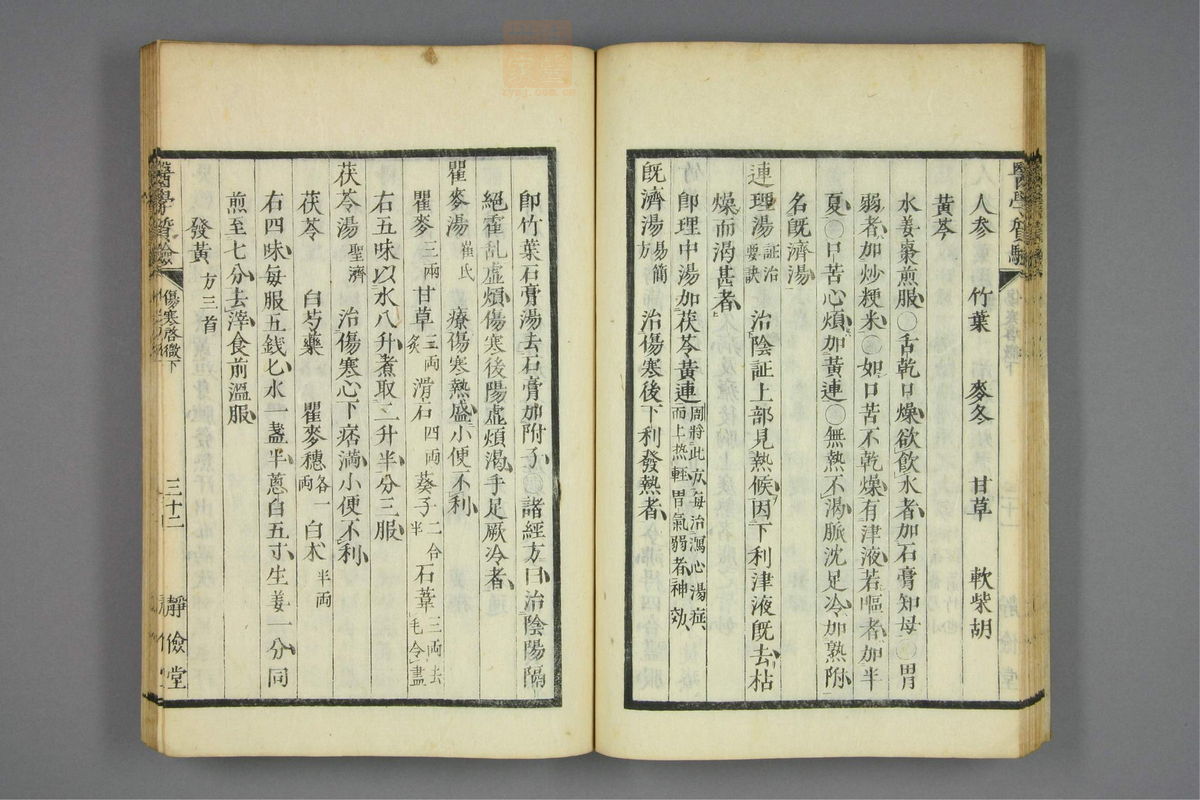 人参　竹葉　麥冬　甘草　軟柴胡
黃芩
水姜棗煎服○舌乾口燥欲飲水者加石膏知母○胃
弱者加炒粳米○如口苦不乾燥有津液若嘔者加半
夏○口苦心煩加黃連○無熱不渴脈沈足冷加熟附
名既濟湯
連理湯證治要訣　治陰証上部見熱候因下利津液既去枯
燥而渴甚者
卽理中湯加茯苓黃連周將此方每治瀉心湯症而上热輕胃氣弱者神効
既濟湯易簡方　治傷寒後下利發熱者
卽竹葉石膏湯去石膏加附子○諸經方曰治陰陽隔
絕霍乱虛煩傷寒後陽虛煩渴手足厥冷者
瞿麥湯崔氏　療傷寒熱盛小便不利
瞿麥三兩甘草三両炙滑石四両葵子二合半石葦三両去毛令盡
右五味以水八升煮取二升半分三服
茯苓湯聖濟　治傷寒心下痞滿小便不利
茯苓　白芍藥　瞿麥穗各一両白朮半両
右四味每服五錢匕水一盞半蔥白五寸生姜一分同
煎至七分去滓食前溫服
發黃方三首
醫學質驗　傷寒啓微下　三十二　靜儉堂